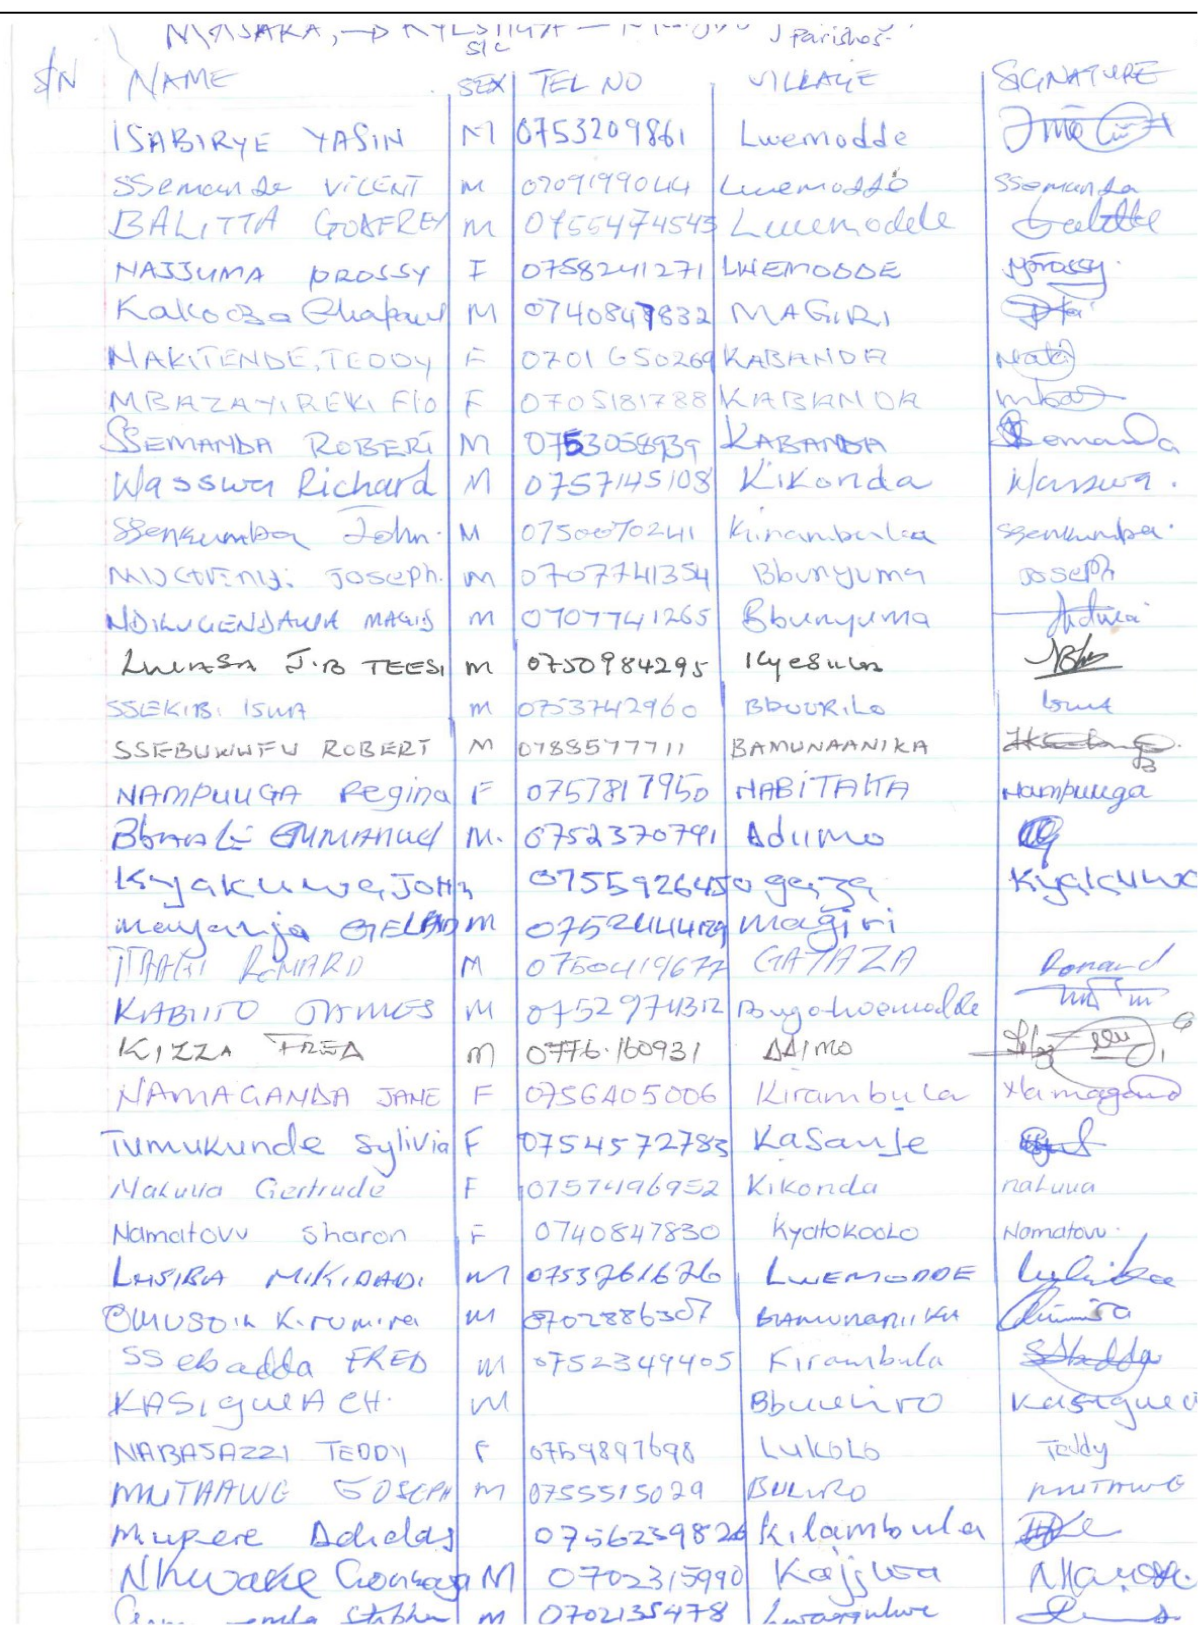 MASAKA, → Parishes.
S/C
S/N NAME SEX TEL NO VILLAGE SIGNATURE
ISABIRYE YASIN M 0753209861 Lwemodde
SSemanda VICENT M 0709199044 Lwemodde SSemanda
BALITTA GODFREY M 0755474543 Lwemodde
NAJJUMA PROSSY F 0758241271 LWEMODDE Nprossy.
Kakooza M 0740847832 MAGIRI
NAKITENDE, TEDDY F 0701650269 KABANDA Naki
MBAZAYIREKI Flo F 0705181788 KABANDA mbaz
SSEMANDA ROBERT M 0753058939 KABANDA Ssemanda
Wasswa Richard M 0757145108 Kikonda Wasswa.
SSenkumba John. M 0750070241 Kirambulaa SSenkumba.
JOSEPH. M 0707741354 Bbunyuma Joseph
NDIKUGENDAWA MAGID M 0707741265 Bbunyuma
LWASA J.B TEESI M 0750984295 Kyesula
SSEKIBI ISMA M 0753742960 BbUURILO Isma
SSEBUWUFU ROBERT M 0788577711 BAMUNAANIKA
NAMPUUGA Regina F 0757817950 NABITAKA Nampuuga
Bbaale EMMANUEL M. 0752370791 Adiimo
Kyakuwa, JOHN 0755926450 gayaza Kyakuwa
mayanja GELARD M magiri
ITAAGI RONARD M 0750419677 GAYAZA Ronard
KABIITO JAMES M 0752974312
KIZZA FRED M 0776.160931 DDIMO
NAMAGANDA JANE F 0756405006 Kirambula Namaganda
Tumukunde Sylivia F 0754572783 Kasanje
Nakuua Gertrude F 0757496952 Kikonda nakuua
Namatovu Sharon F 0740847830 Kyatokoolo Namatovu.
LUSIBA MIKIDADI. M 0753761676 LWEMODDE
Kirumira M 0702886307
SSebadda FRED M 0752349405 Kirambula SSbadda
KASIGWA CH. M Bbuuliro
NABASAZZI TEDDY F 0759897698 LUKOLO Teddy
MUTAAWE JOSEPH M 0755515029 BULIRO MUTAAWE
Mupere Adidas 0756239826 Kilambula
Nkwake Gonzaga M 0702315990 Kajjwa
M 0702135478